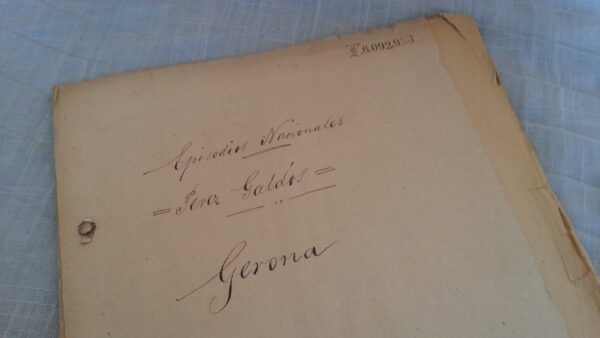 L.6.092.953
Episodios Nacionales
= Perez Galdós =
Gerona